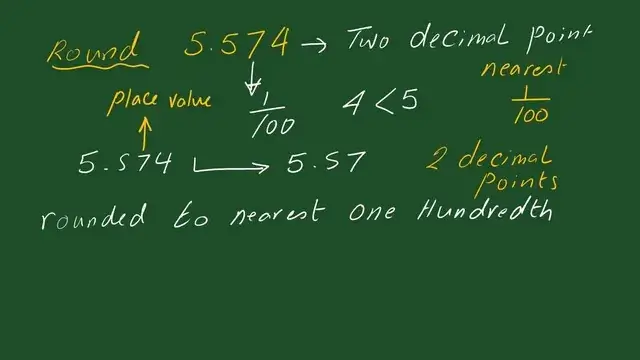 Round 5.574 → Two decimal point
nearest
1/100
place value 1/100 4 < 5
5.574 → 5.57 2 decimal points
rounded to nearest one Hundredth